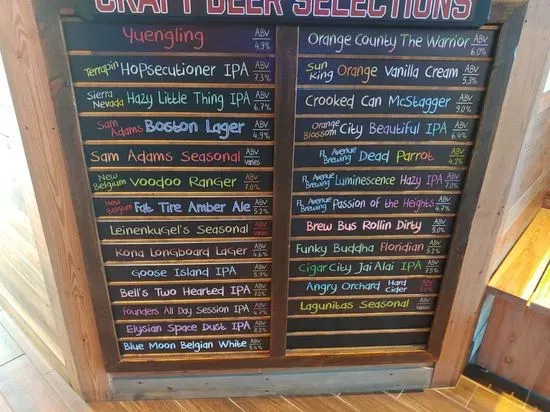 CRAFT BEER SELECTIONS
Yuengling ABV 4.9%
Terrapin Hopsecutioner IPA ABV 7.3%
Sierra Nevada Hazy Little Thing IPA ABV 6.7%
Sam Adams Boston Lager ABV 4.9%
Sam Adams Seasonal ABV varies
New Belgium Voodoo Ranger ABV 7.0%
New Belgium Fat Tire Amber Ale ABV 5.2%
Leinenkugel's Seasonal ABV varies
Kona Longboard Lager ABV 4.6%
Goose Island IPA ABV 5.9%
Bell's Two Hearted IPA ABV 7.0%
Founders All Day Session IPA ABV 4.7%
Elysian Space Dust IPA ABV 8.2%
Blue Moon Belgian White ABV 5.4%
Orange County The Warrior ABV 6.0%
Sun King Orange Vanilla Cream ABV 5.3%
Crooked Can McStagger ABV 9.0%
Orange Blossom City Beautiful IPA ABV 6.4%
FL Avenue Brewing Dead Parrot ABV 4.2%
FL Avenue Brewing Luminescence Hazy IPA ABV 7.0%
FL Avenue Brewing Passion of the Heights ABV 4.7%
Brew Bus Rollin Dirty ABV 5.0%
Funky Buddha Floridian ABV 5.2%
Cigar City Jai Alai IPA ABV 7.5%
Angry Orchard Hard Cider ABV 5.0%
Lagunitas Seasonal ABV varies